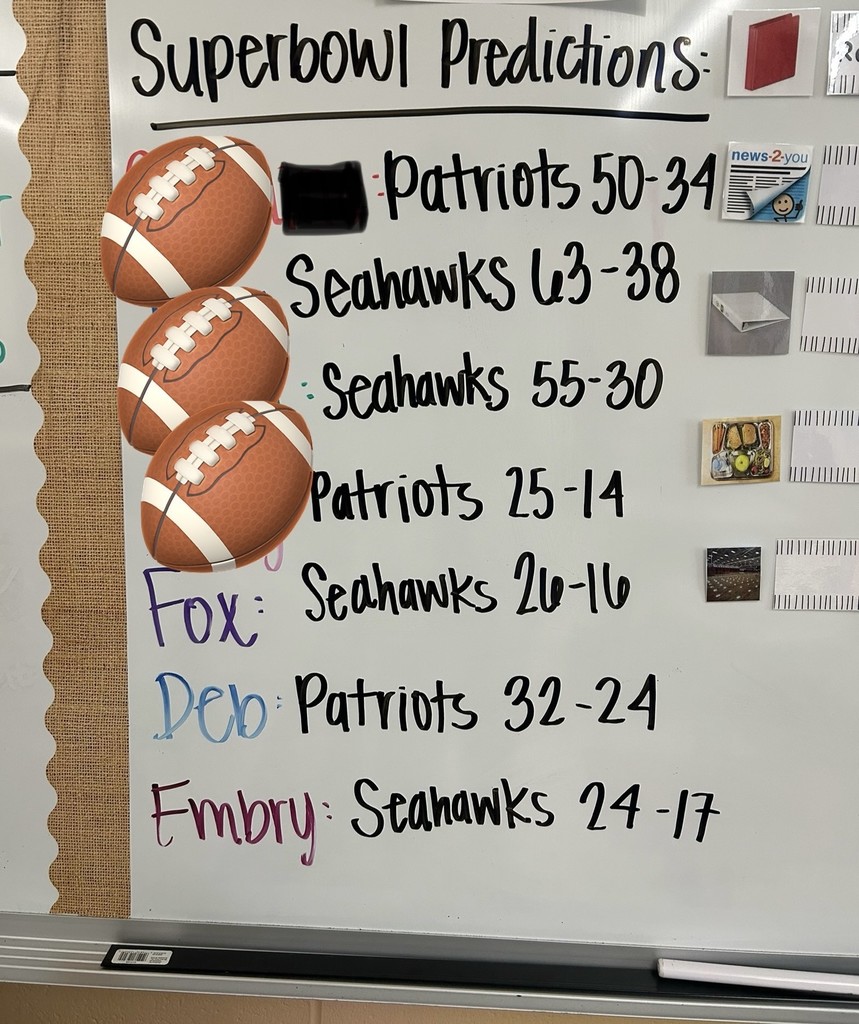 Superbowl Predictions:
: Patriots 50-34
news-2-you
Seahawks 63-38
: Seahawks 55-30
Patriots 25-14
Fox: Seahawks 26-16
Deb: Patriots 32-24
Embry: Seahawks 24-17